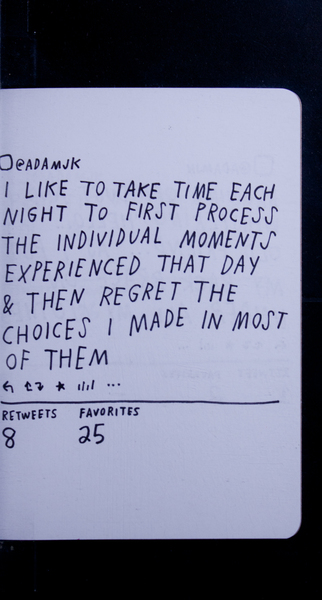 @ADAMJK
I LIKE TO TAKE TIME EACH
NIGHT TO FIRST PROCESS
THE INDIVIDUAL MOMENTS
EXPERIENCED THAT DAY
& THEN REGRET THE
CHOICES I MADE IN MOST
OF THEM
RETWEETS FAVORITES
8 25